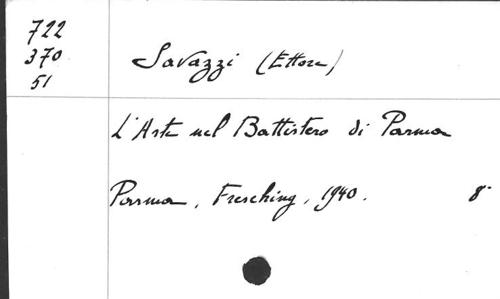 722
370
51
Savazzi (Ettore)
L'Arte nel Battistero di Parma
Parma, Fresching, 1940. 8°